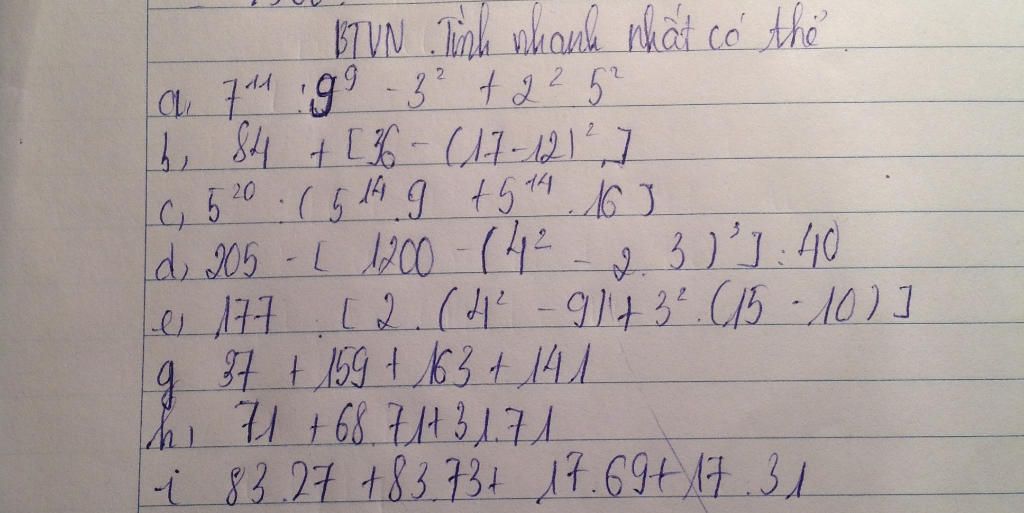 BTVN. Tính nhanh nhất có thể
a, 7¹¹ : 9⁹ - 3² + 2² 5²
b, 84 + [36 - (17-12)².]
c, 5²⁰ : ( 5¹⁴.9 + 5¹⁴.16]
d, 205 - [ 1200 - (4² - 2.3)³] : 40
e, 177 : [2.(4² - 9) + 3².(15 - 10)]
g 37 + 159 + 163 + 141
h, 71 + 68.71+31.71
i 83.27 +83.73+ 17.69+17.31